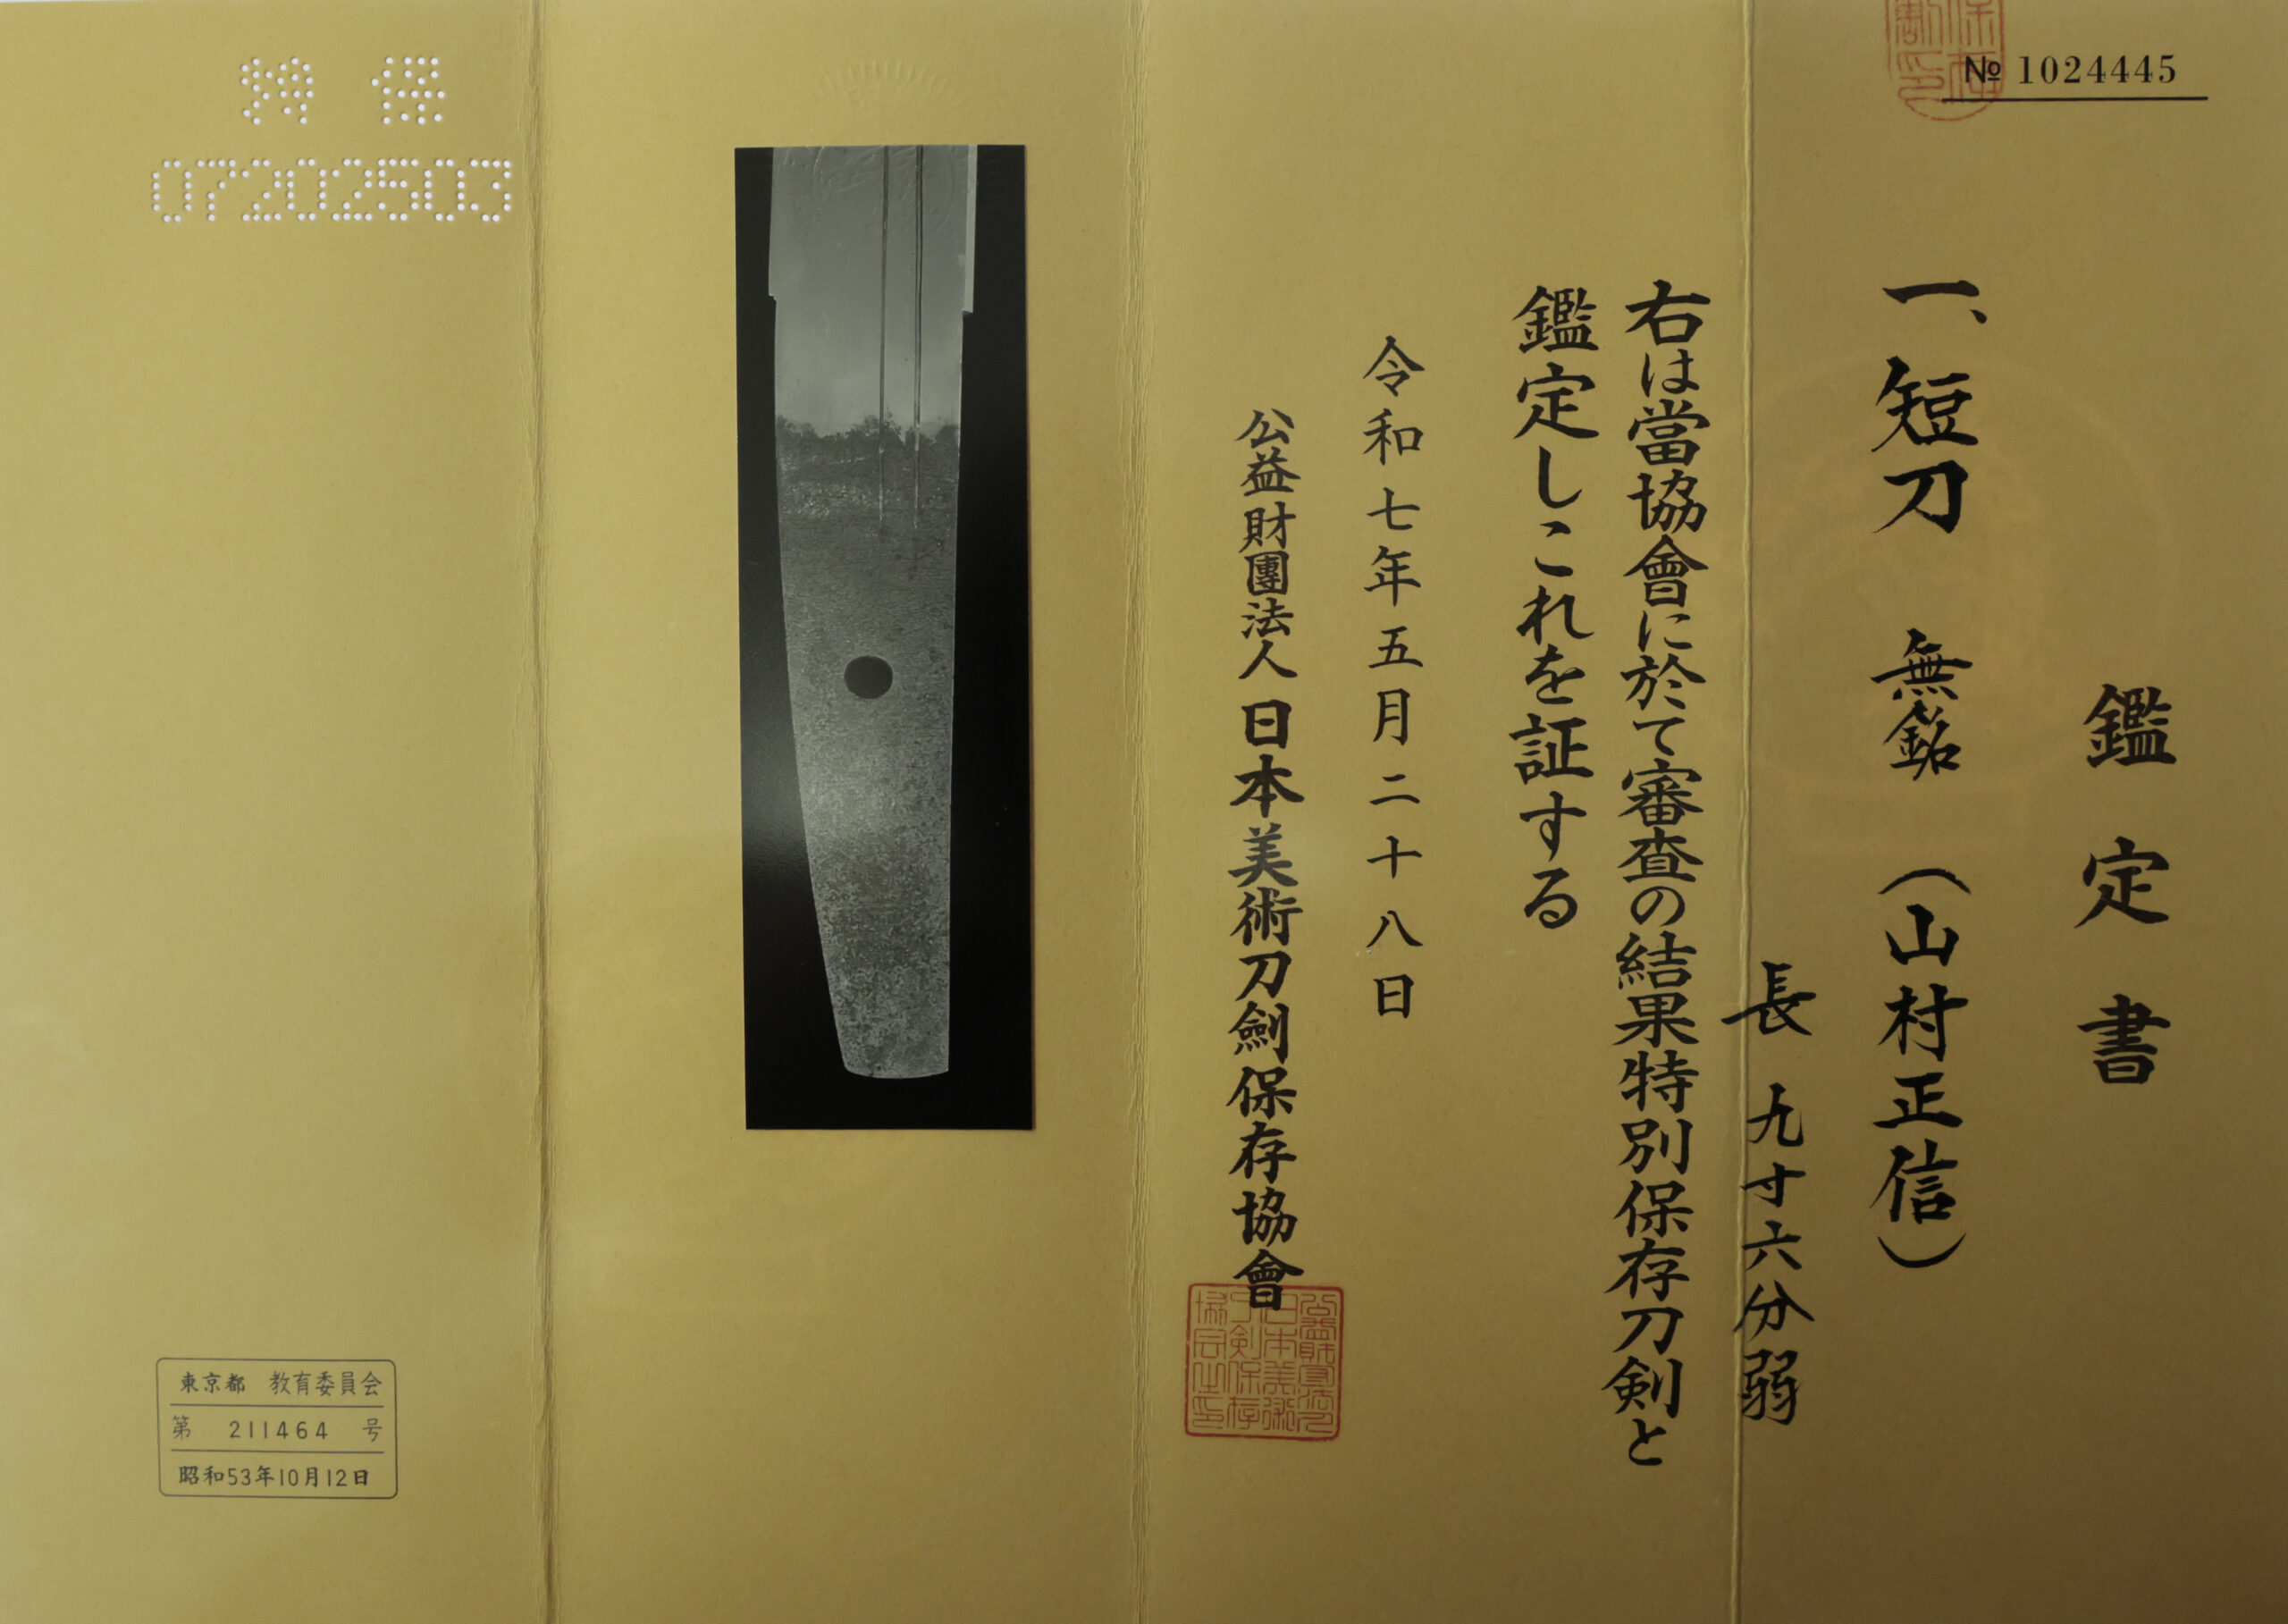 № 1024445
鑑定書
一、短刀 無銘 (山村正信)
長 九寸六分弱
右は當協會に於て審査の結果特別保存刀剣と
鑑定しこれを証する
令和七年五月二十八日
公益財團法人 日本美術刀劍保存協會
特 保
07202503
東京都 教育委員会
第 211464 号
昭和53年10月12日